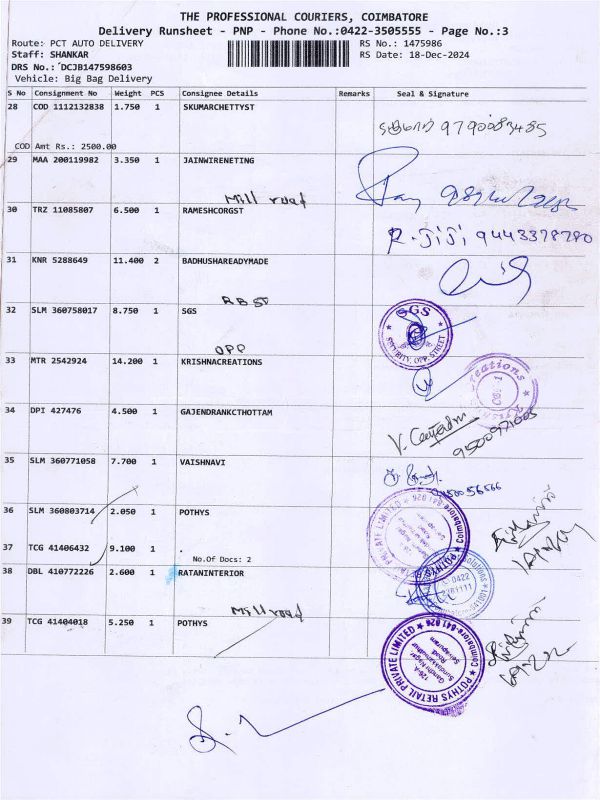 THE PROFESSIONAL COURIERS, COIMBATORE
Delivery Runsheet - PNP - Phone No.:0422-3505555 - Page No.:3
Route: PCT AUTO DELIVERY RS No.: 1475986
Staff: SHANKAR RS Date: 18-Dec-2024
DRS No.: DCJB147598603
Vehicle: Big Bag Delivery
S No Consignment No Weight PCS Consignee Details Remarks Seal & Signature
28 COD 1112132838 1.750 1 SKUMARCHETTYST
COD Amt Rs.: 2500.00
29 MAA 200119982 3.350 1 JAINWIRENETING
Mill road
30 TRZ 11085807 6.500 1 RAMESHCORGST
R. JiJi, 9443378780
31 KNR 5288649 11.400 2 BADHUSHAREADYMADE
RB St
32 SLM 360758017 8.750 1 SGS
SGS
OPP
33 MTR 2542924 14.200 1 KRISHNACREATIONS
34 DPI 427476 4.500 1 GAJENDRANKCTHOTTAM
35 SLM 360771058 7.700 1 VAISHNAVI
36 SLM 360803714 2.050 1 POTHYS
37 TCG 41406432 9.100 1 .
No.Of Docs: 2
38 DBL 410772226 2.600 1 RATANINTERIOR
Mill road
39 TCG 41404018 5.250 1 POTHYS
POTHYS RETAIL PRIVATE LIMITED
Coimbatore-641 026